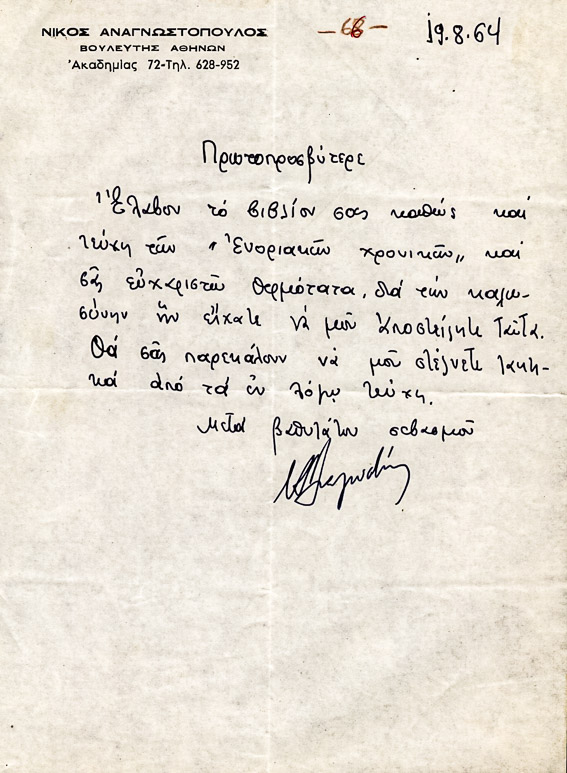 ΝΙΚΟΣ ΑΝΑΓΝΩΣΤΟΠΟΥΛΟΣ
ΒΟΥΛΕΥΤΗΣ ΑΘΗΝΩΝ
Ἀκαδημίας 72-Τηλ. 628-952
-66-
19.8.64
Πρωτοπρεσβύτερε
Ἔλαβον τό βιβλίον σας καθώς καί
τεύχη τῶν "Ἐνοριακῶν χρονικῶν" καί
σᾶς εὐχαριστῶ θερμότατα, διά τήν καλω-
σύνην ἥν εἴχατε νά μοῦ ἀποστείλητε ταῦτα.
Θά σᾶς παρεκάλουν νά μοῦ στέλνετε τακτι-
κά ἀπό τά ἐν λόγῳ τεύχη.
Μετά βαθυτάτου σεβασμοῦ